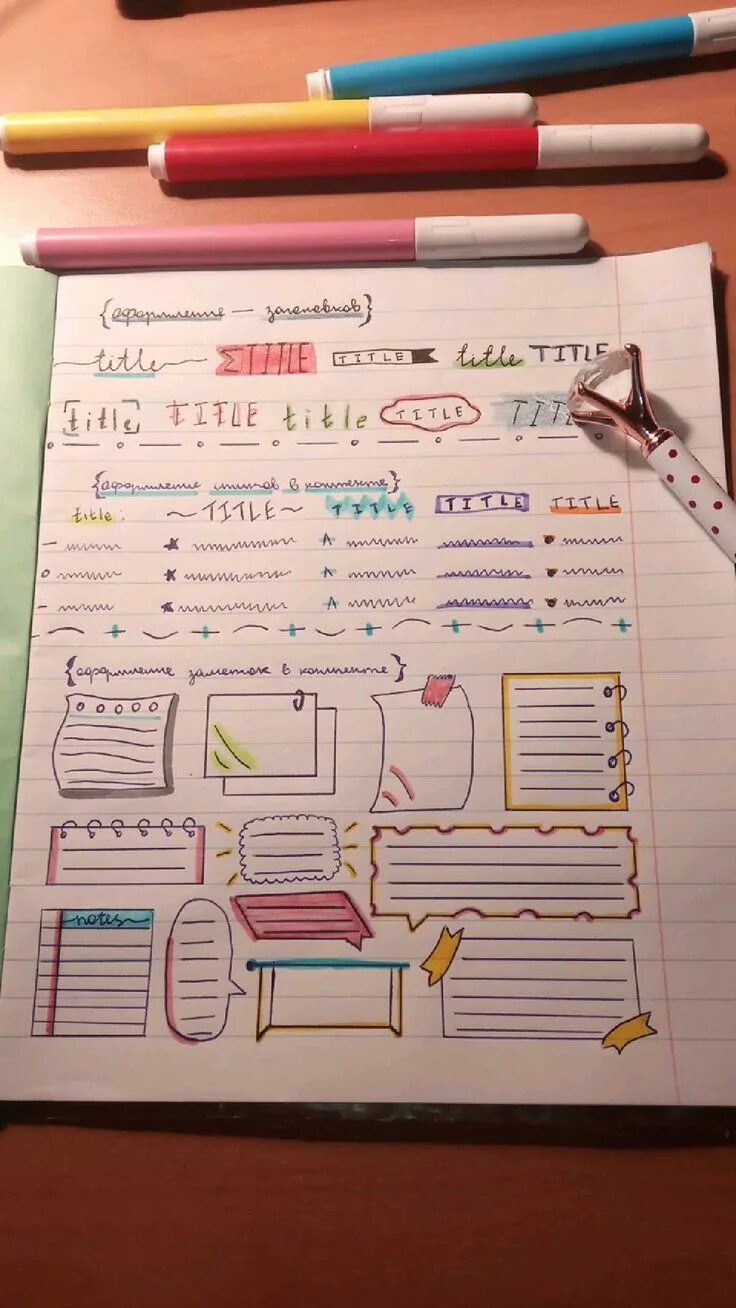 {оформление — заголовков}
title TITLE TITLE title TITLE
title TITLE title TITLE TIT
{оформление в конспекте}
title: ~TITLE~ TITLE TITLE TITLE
{оформление заметок в конспекте}
notes